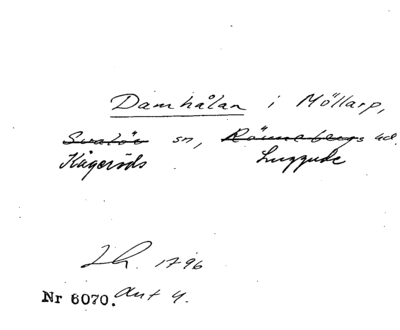 Damhålan i Möllarp,
Svalöv sn, Rönnebergs hd.
Kågeröds Luggude
Lh. 1796
Nr 6070. akt 4.